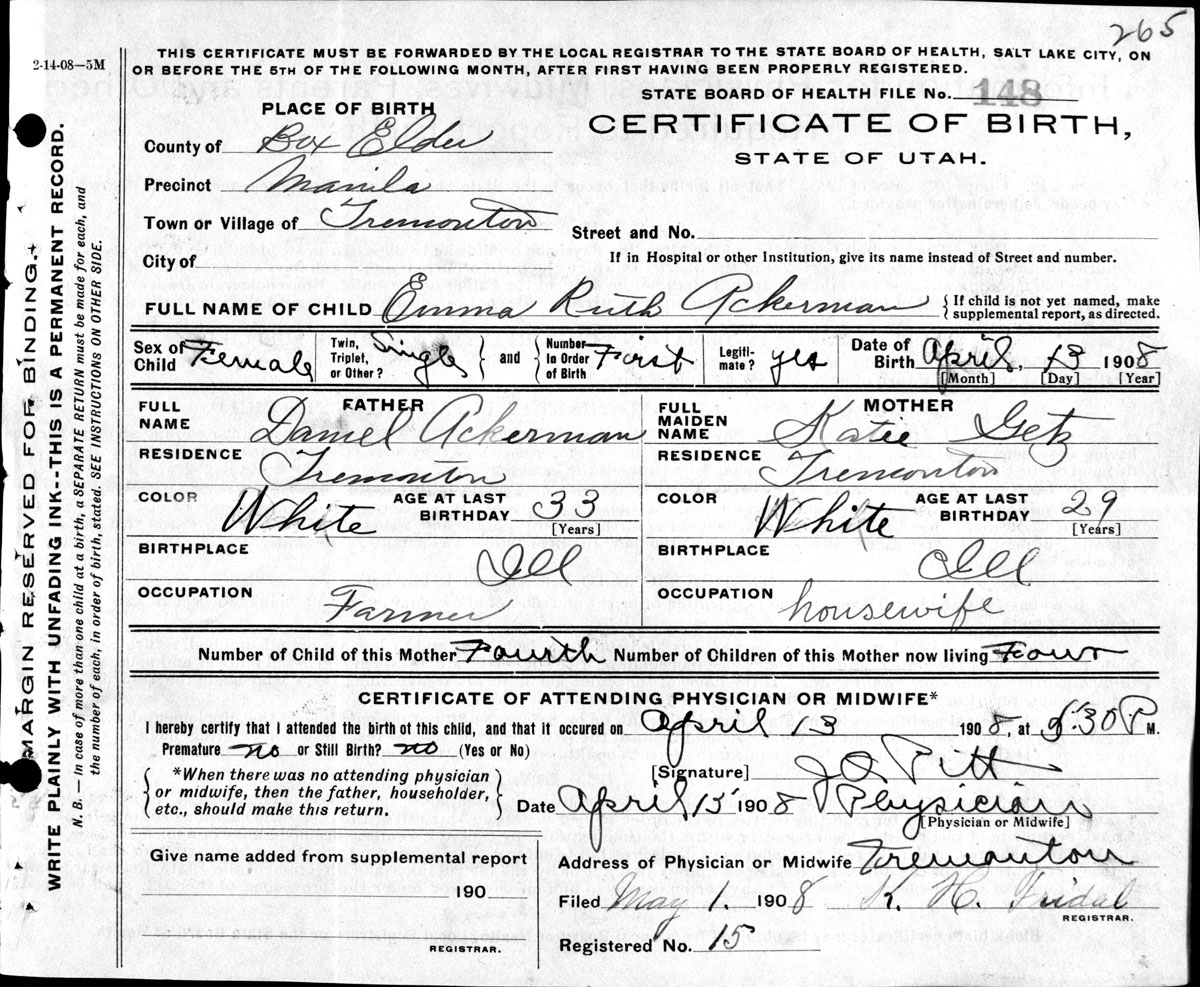 265
2-14-08—5M
THIS CERTIFICATE MUST BE FORWARDED BY THE LOCAL REGISTRAR TO THE STATE BOARD OF HEALTH, SALT LAKE CITY, ON
OR BEFORE THE 5TH OF THE FOLLOWING MONTH, AFTER FIRST HAVING BEEN PROPERLY REGISTERED.
STATE BOARD OF HEALTH FILE No. 148
PLACE OF BIRTH
CERTIFICATE OF BIRTH,
STATE OF UTAH.
County of Box Elder
Precinct Manila
Town or Village of Tremonton
Street and No.
City of
If in Hospital or other Institution, give its name instead of Street and number.
FULL NAME OF CHILD Emma Ruth Ackerman { If child is not yet named, make
supplemental report, as directed.
Sex of Child Female Twin, Triplet, or Other? Single } and { Number In Order of Birth First Legiti- mate? yes Date of Birth April, 13 1908
[Month] [Day] [Year]
FATHER MOTHER
FULL NAME Daniel Ackerman FULL MAIDEN NAME Katie Getz
RESIDENCE Tremonton RESIDENCE Tremonton
COLOR White AGE AT LAST BIRTHDAY 33 [Years] COLOR White AGE AT LAST BIRTHDAY 29 [Years]
BIRTHPLACE Ill BIRTHPLACE Ill
OCCUPATION Farmer OCCUPATION housewife
Number of Child of this Mother Fourth Number of Children of this Mother now living Four
CERTIFICATE OF ATTENDING PHYSICIAN OR MIDWIFE*
I hereby certify that I attended the birth of this child, and that it occured on April 13 1908, at :30 P M.
Premature no or Still Birth? no (Yes or No)
{ *When there was no attending physician
or midwife, then the father, householder,
etc., should make this return. }
[Signature] Pitt
Date April 15 1908 Physician
[Physician or Midwife]
Give name added from supplemental report
190
REGISTRAR.
Address of Physician or Midwife Tremonton
Filed May 1. 1908 K. H. Fridal
REGISTRAR.
Registered No. 15
MARGIN RESERVED FOR BINDING.
WRITE PLAINLY WITH UNFADING INK--THIS IS A PERMANENT RECORD.
N. B. — In case of more than one child at a birth, a SEPARATE RETURN must be made for each, and
the number of each, in order of birth, stated. SEE INSTRUCTIONS ON OTHER SIDE.